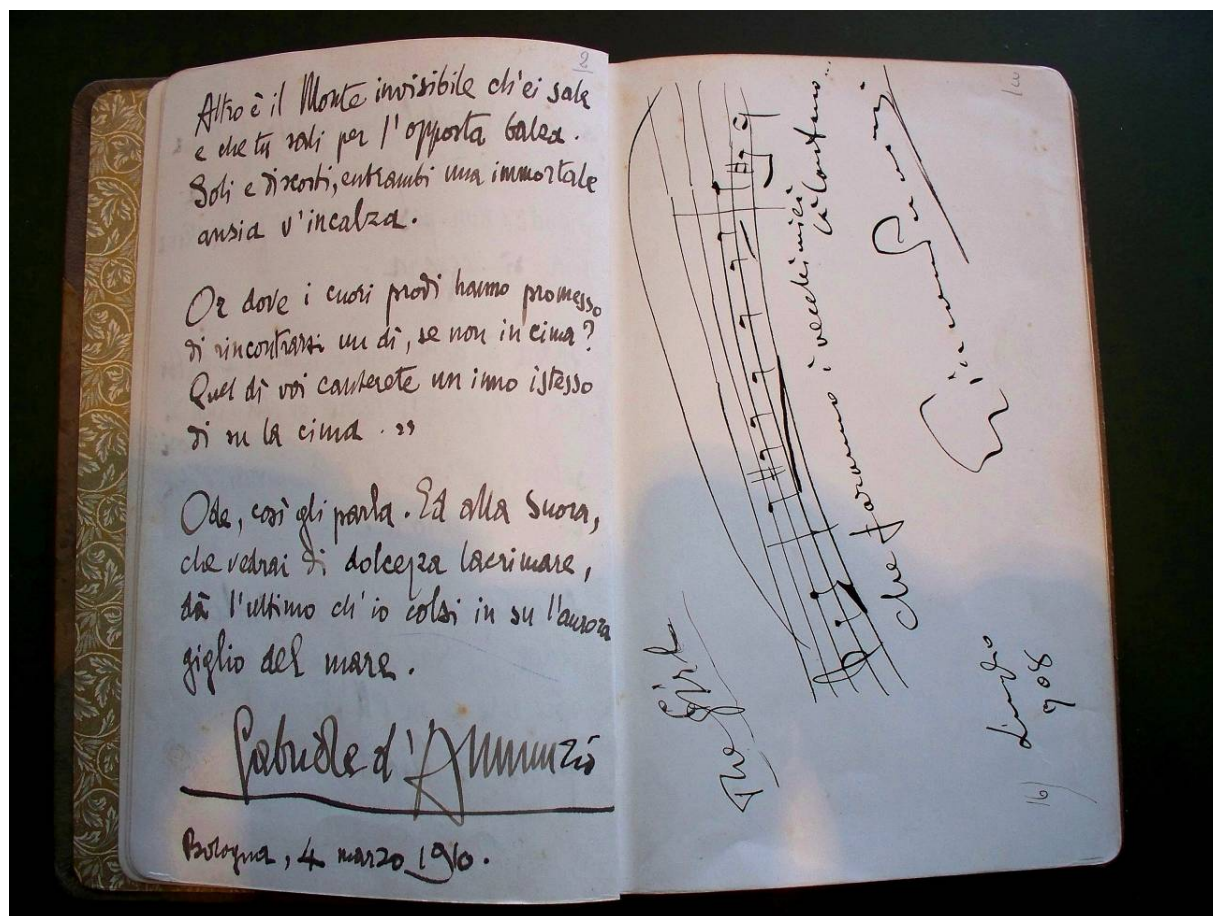 2
Altro è il Monte invisibile ch'ei sale
e che tu sali per l'opposta balza.
Soli e discosti, entrambi una immortale
ansia v'incalza.
Or dove i cuori prodi hanno promesso
di rincontrarsi un dì, se non in cima?
Quel dì voi canterete un inno istesso
di su la cima. »
Ode, così gli parla. Ed alla Suora,
che vedrai di dolcezza lacrimare,
dà l'ultimo ch'io colsi in su l'aurora
giglio del mare.
Gabriele d'Annunzio
Bologna, 4 marzo 1910.
3
The Girl
che faranno i vecchi miei
là lontano...
Giacomo Puccini
Luglio
908
16)